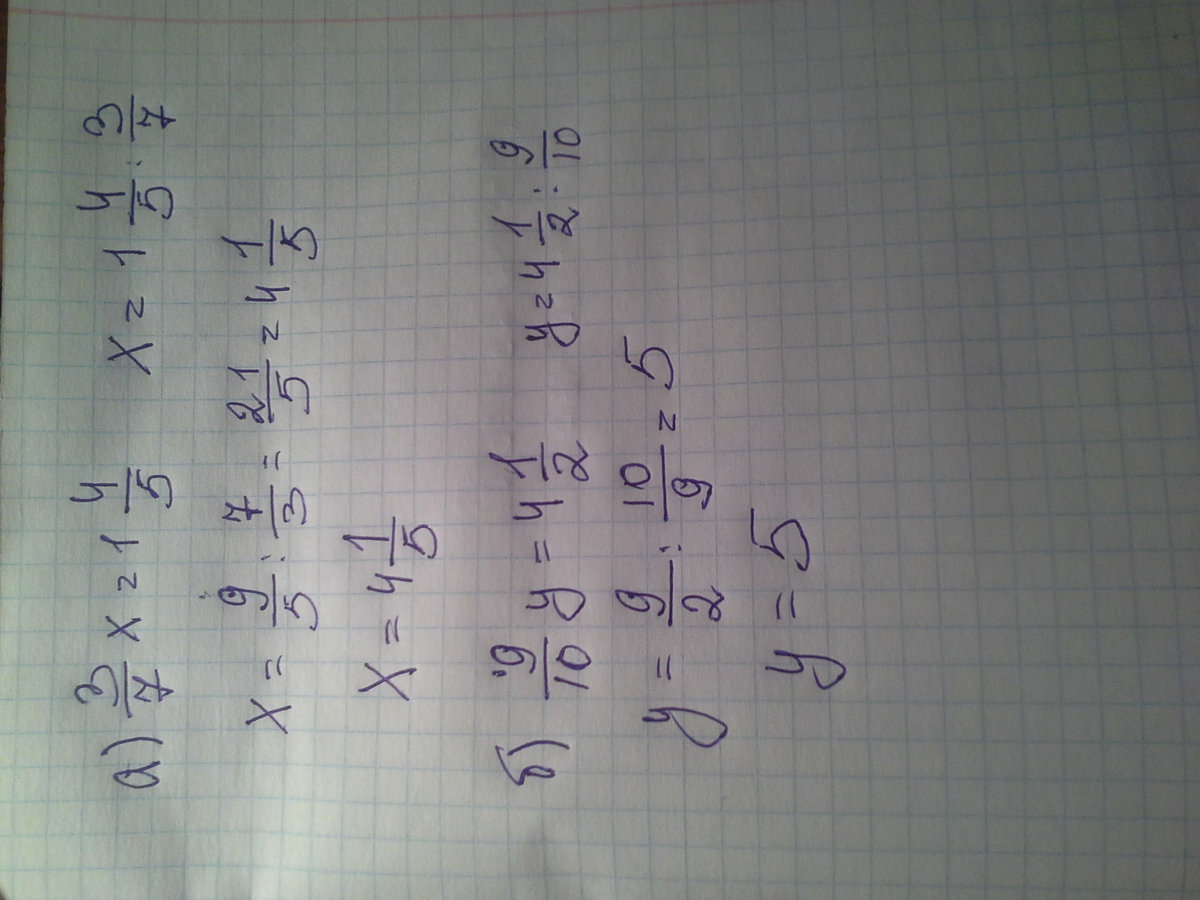 а) 3/7 x = 1 4/5 x = 1 4/5 : 3/7
x = 9/5 : 7/3 = 21/5 = 4 1/5
x = 4 1/5
б) 9/10 y = 4 1/2 y = 4 1/2 : 9/10
y = 9/2 : 10/9 = 5
y = 5